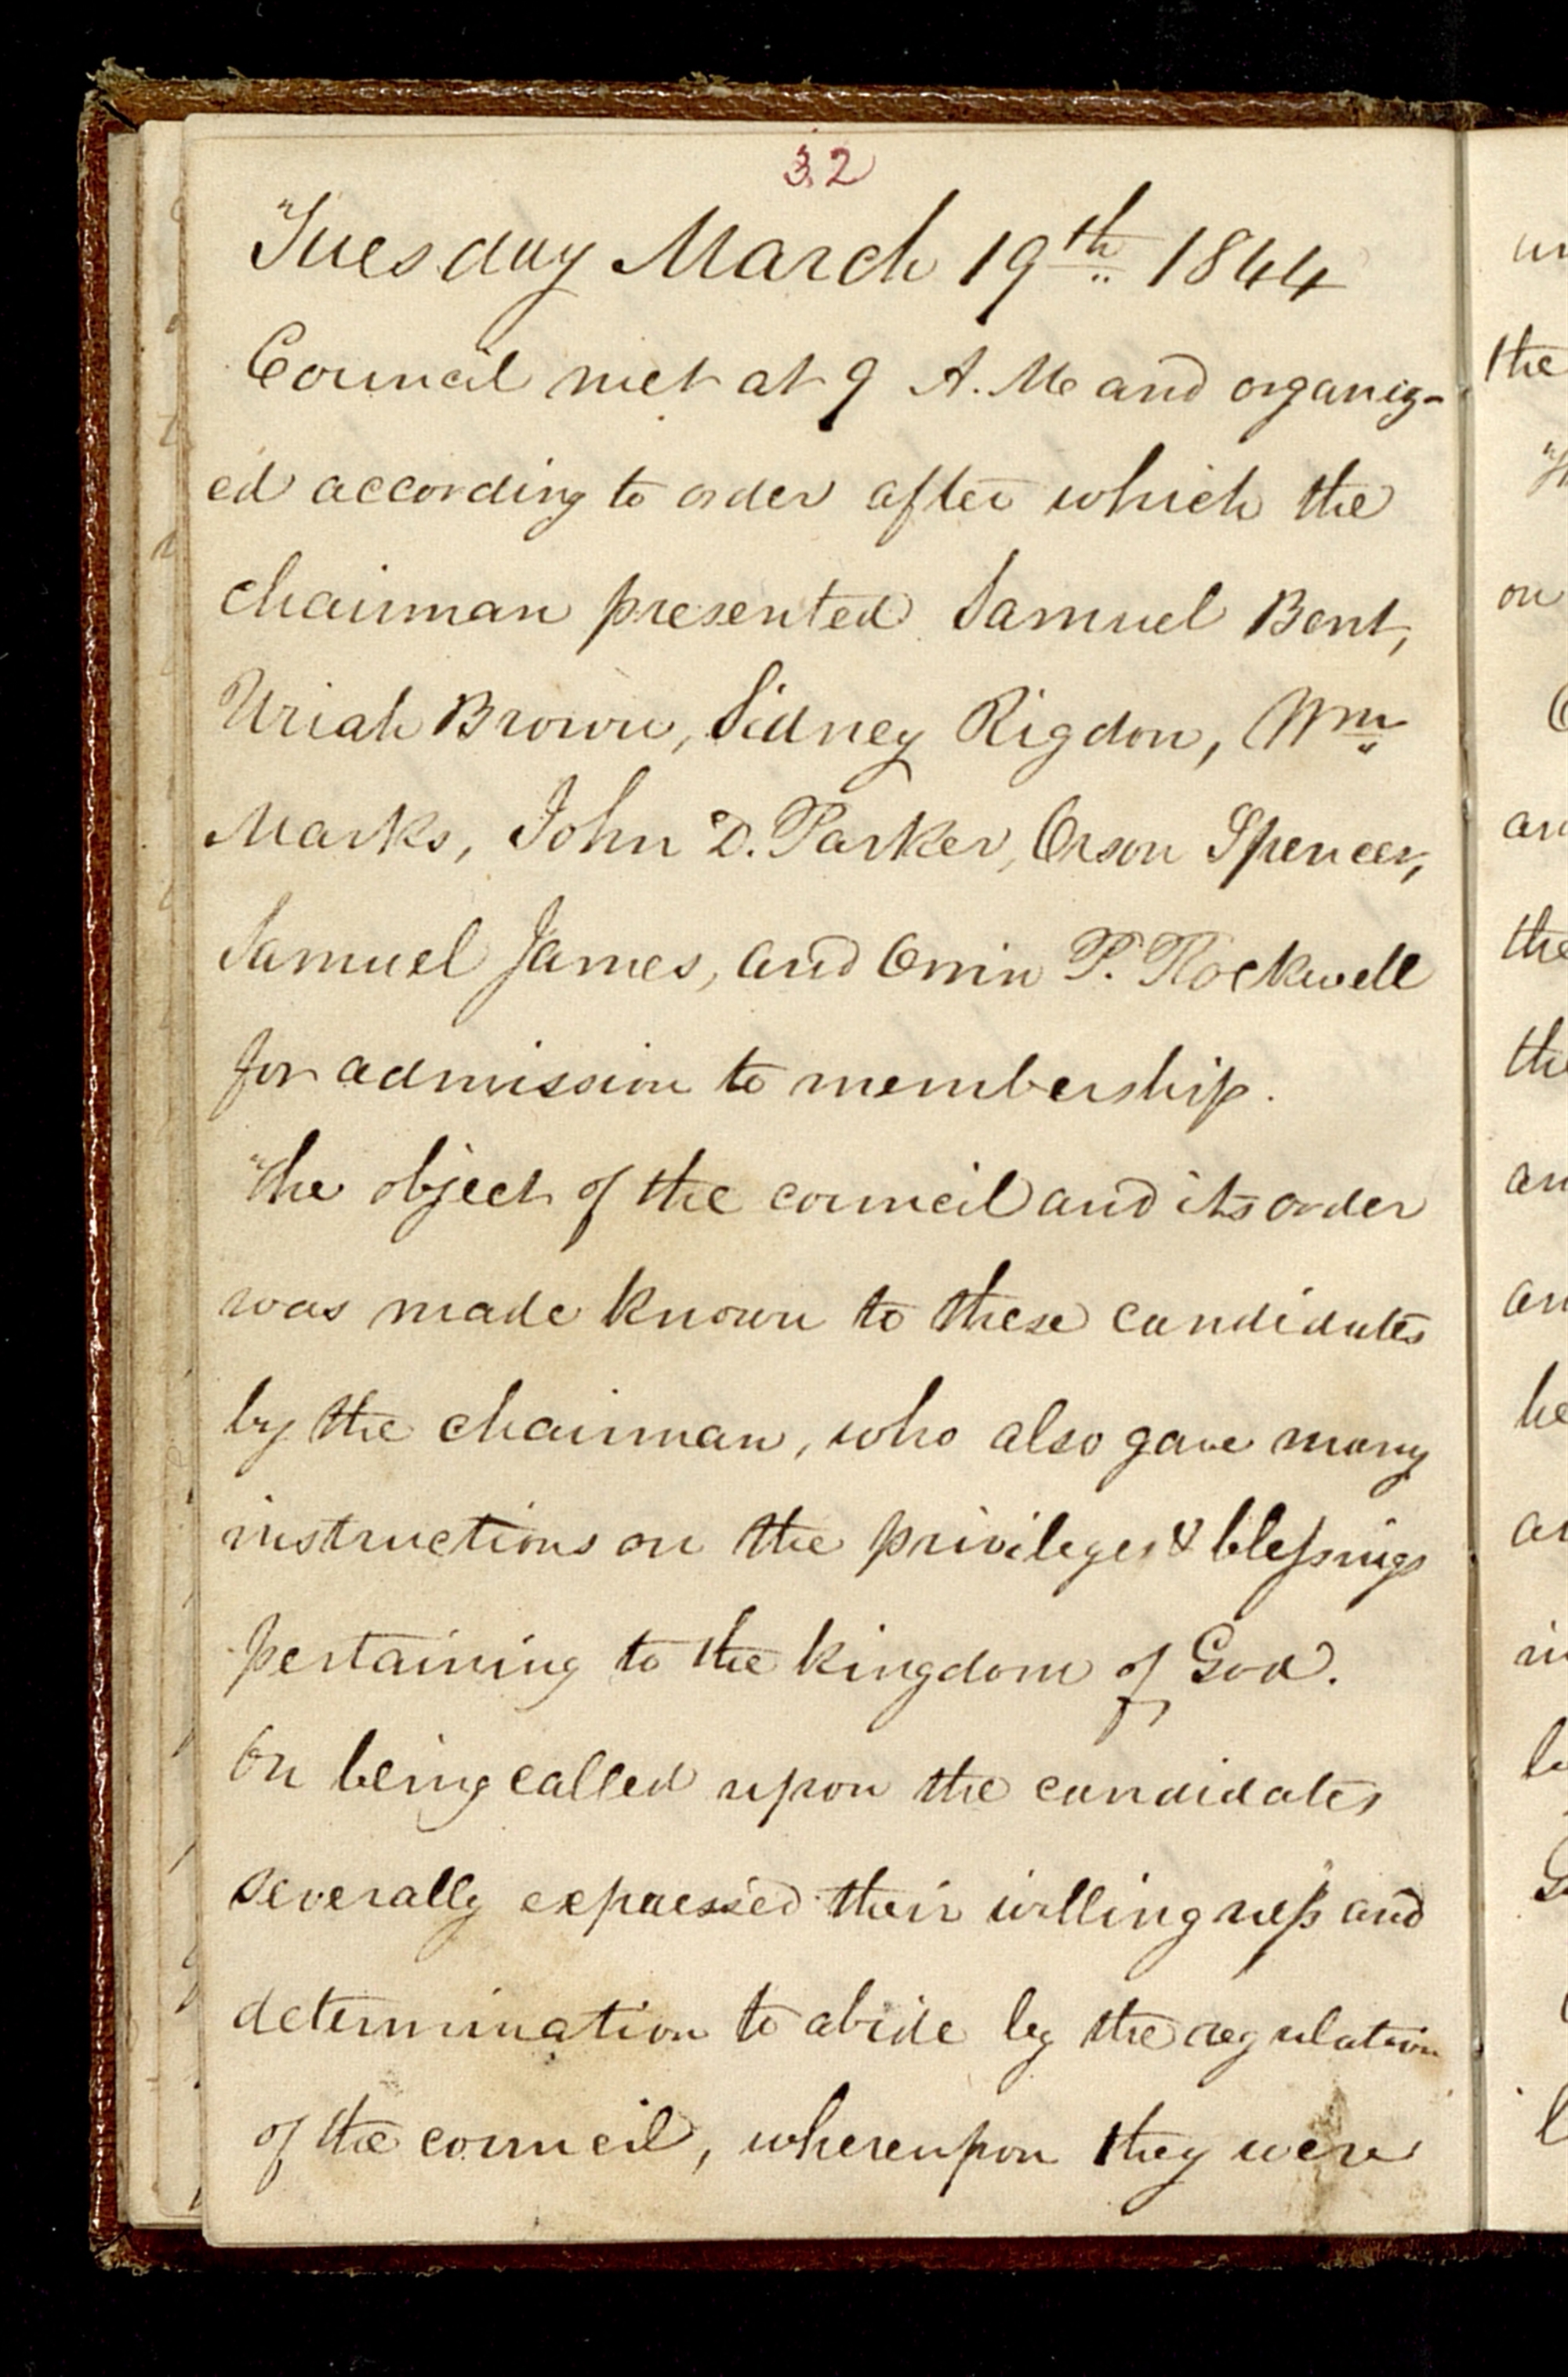 32
Tuesday March 19th 1844
Council met at 9 A. M and organiz-
ed according to order after which the
chairman presented Samuel Bent,
Uriah Brown, Sidney Rigdon, Wm
Marks, John D. Parker, Orson Spencer,
Samuel James, and Orrin P. Rockwell
for admission to membership.
The object of the council and its order
was made known to these candidates
by the chairman, who also gave many
instructions on the privileges & blessings
pertaining to the kingdom of God.
On being called upon the candidates
severally expressed their willingness and
determination to abide by the regulation
of the council, whereupon they were
the
on
the